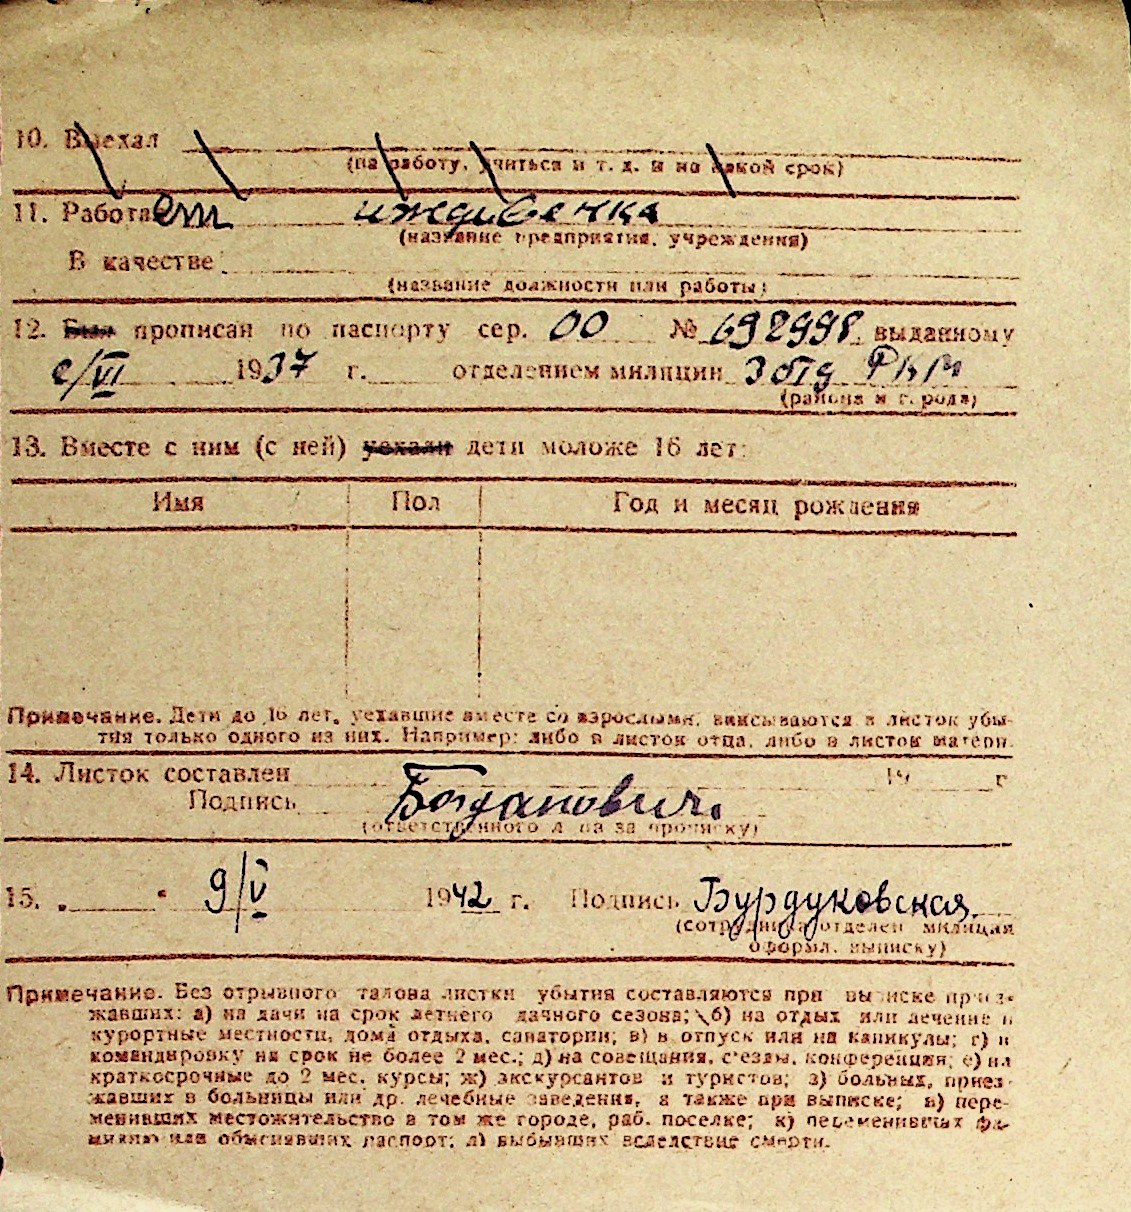 10. Выехал
(на работу, учиться и т. д. и на какой срок)
11. Работает иждивенка
(название предприятия, учреждения)
В качестве
(название должности или работы)
12. Был прописан по паспорту сер. ОО № 692998 выданному
/VI 1937 г. отделением милиции 3 отд РКМ
(района и города)
13. Вместе с ним (с ней) уехали дети моложе 16 лет:
Имя Пол Год и месяц рождения
Примечание. Дети до 16 лет, уехавшие вместе со взрослыми, вписываются в листок убы-
тия только одного из них. Например: либо в листок отца, либо в листок матери.
14. Листок составлен 19 г
Подпись Богданович
(ответственного лица за прописку)
15. „ “ 9/V 1942 г. Подпись Бурдуковская
(сотрудника отделен милиции
оформл. выписку)
Примечание. Без отрывного талона листки убытия составляются при выписке приез-
жавших: а) на дачи на срок летнего дачного сезона; б) на отдых или лечение в
курортные местности, дома отдыха, санатории; в) в отпуск или на каникулы; г) в
командировку на срок не более 2 мес.; д) на совещания, с'езды, конференции; е) на
краткосрочные до 2 мес. курсы; ж) экскурсантов и туристов; з) больных, приез-
жавших в больницы или др. лечебные заведения, а также при выписке; и) пере-
менивших местожительство в том же городе, раб. поселке; к) переменивших фа-
милию или обменявших паспорт; л) выбывших вследствие смерти.